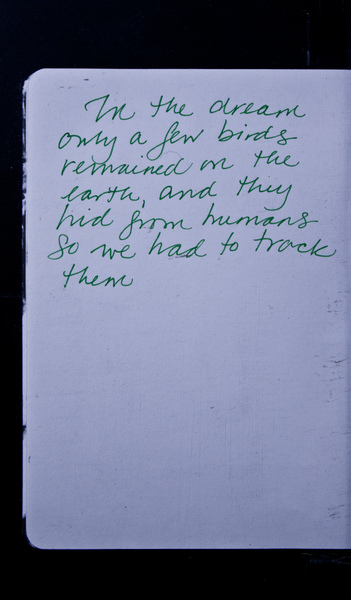 In the dream
only a few birds
remained on the
earth, and they
hid from humans
so we had to track
them